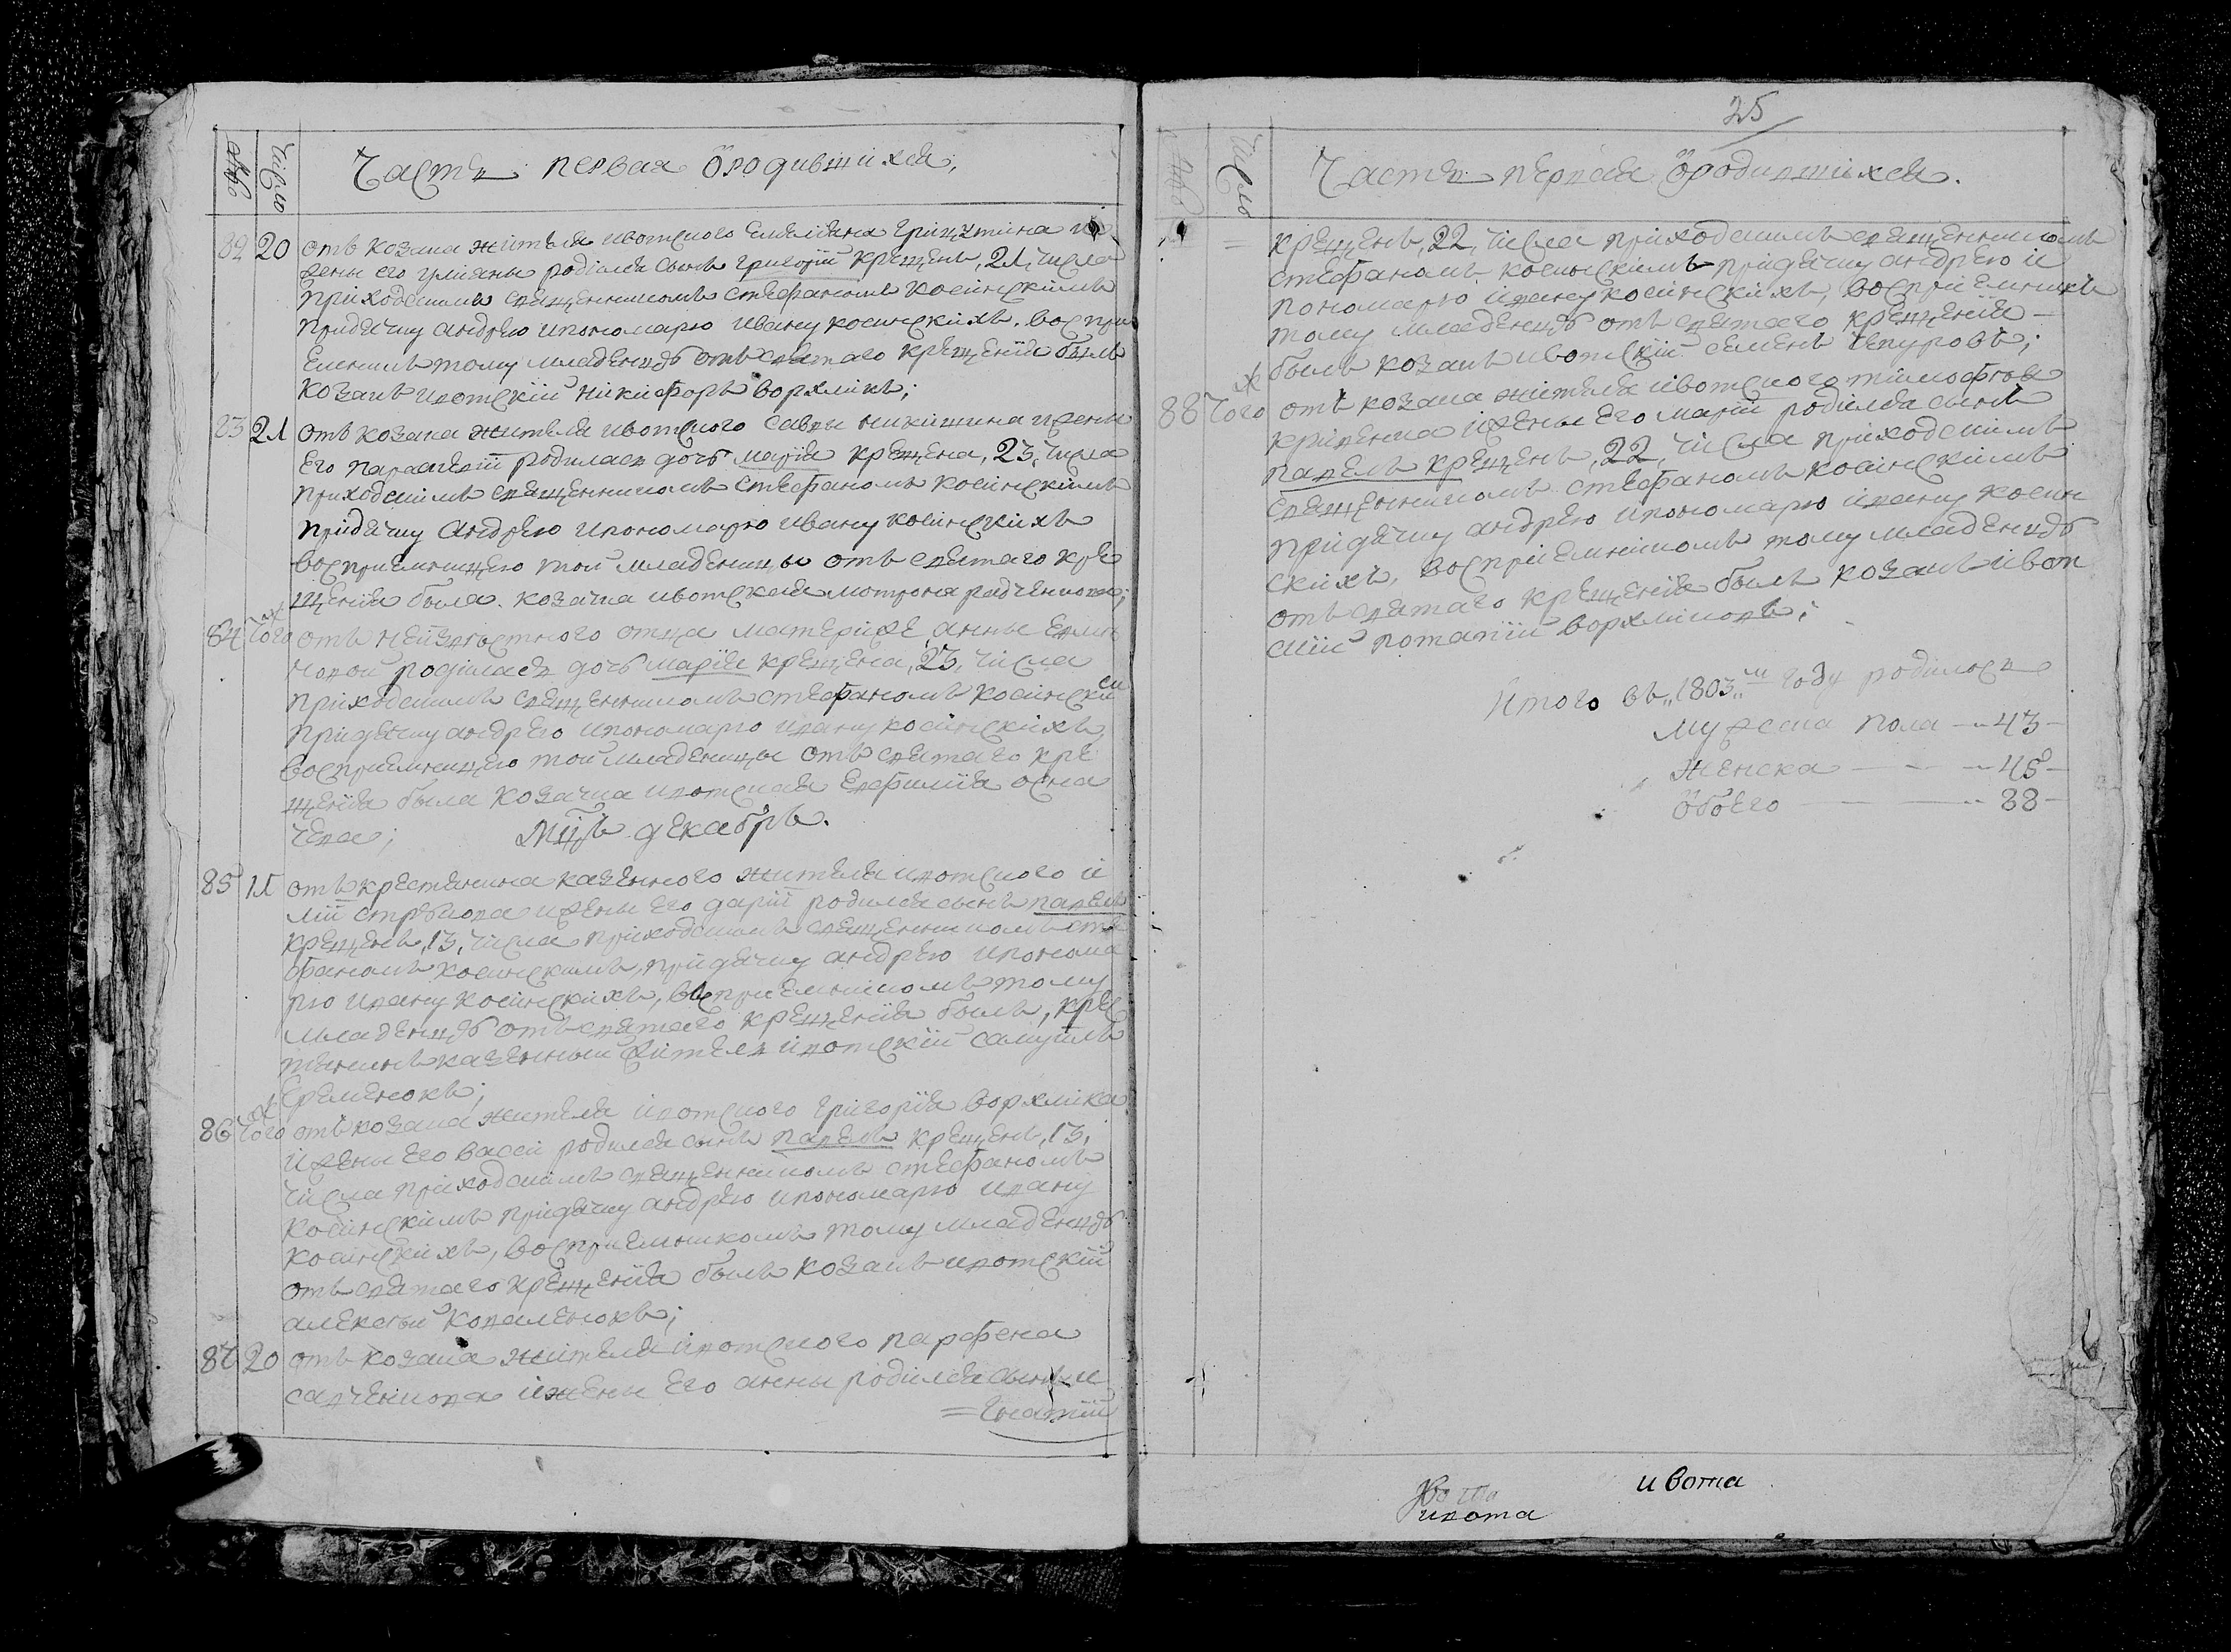 Число
Часть первая ѡродившихся;
82 20 отъ козака жителя ивотского Емелiяна грицутина и
жены его улiяны родился сынъ григорiй крещенъ, 21, числа
приходскимъ священникомъ стефаномъ косинскимъ
придячку андрею ипономарю ивану косинскихъ. воспри
емникъ тому младенцѣ отъ святаго крещенiя былъ
козакъ ивотскiй никифоръ ворхликъ;
83 21 отъ козака жителя ивотского савы никитина ижены
его параскевiи родилась дочь марiя крещена, 23, числа
приходскимъ священникомъ стефаномъ косинскимъ
придячку андрею ипономарю ивану косинскихъ
воспрiемницею той младеницы отъ святаго кре
щенiя была козачка ивотская мотрона
84 Тогож отъ неизвѣстного отца матерiже анны
родилась дочь марiя крещена, 23, числа
приходскимъ священникомъ стефаномъ косинским
придячку андрею ипономарю ивану косинскихъ,
воспрiемницею той младеницы отъ святаго кре
щенiя была козачка ивотская Евфимiя осна
чева;
Мцъ декабрь.
85 11 отъ крестянина казенного жителя ивотского и
лiи стрѣлкова ижены его дарiи родился сынъ павелъ
крещенъ, 13, числа приходскимъ священникомъ сте
фаномъ косинскимъ, придячку андрею ипонома
рю ивану косинскихъ, воспрiемникомъ тому
младенцѣ отъ святаго крещенiя былъ, крес
тянинъ казенный житель ивотскiй самуилъ
Еременокъ;
86 Тогож отъ козака жителя ивотского григорiя ворхлика
ижены его васси родился сынъ павелъ крещенъ, 13,
числа приходскимъ священникомъ стефаномъ
косинскимъ придячку андрею ипономарю ивану
косинскихъ, воспрiемникомъ тому младенцѣ
отъ святаго крещенiя былъ козакъ ивотскiй
алексѣй коваленокъ;
87 20 отъ козака жителя ивотского парфена
савченкова ижены его анны родился сынъ и
= гнатiй
25
Число
Часть первая ѡродившихся.
= крещенъ, 22, числа приходскимъ священникомъ
стефаномъ косинскимъ придячку андрею и
пономарю ивану косинскихъ, воспрiемникъ
тому младенцѣ отъ святаго крещенiя -
былъ козакъ ивотскiй семенъ чепуровъ;
88 Тогож отъ козака жителя ивотского тимофѣя
кривенка ижены его марiи родился сынъ
павелъ крещенъ, 22, числа приходскимъ
священникомъ стефаномъ косинскимъ
придячку андрею ипономарю ивану косин
скихъ, воспрiемникомъ тому младенцѣ
отъ святаго крещенiя былъ козакъ ивот
скiй потапiй ворхликовъ;
Итого въ 1803м году родилось
мужеска пола - 43 -
женска - 45 -
ѡбоего - 88 -
ивота
ивота